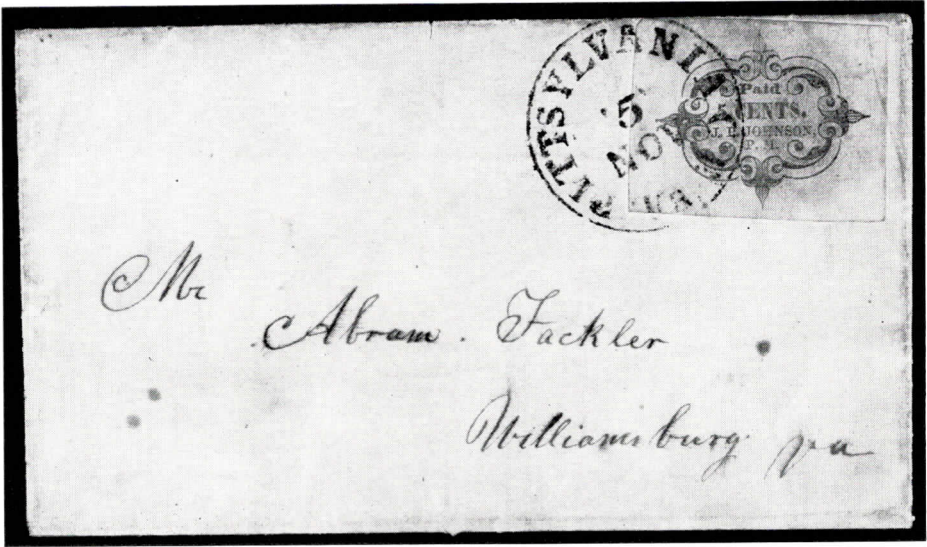 PITTSYLVANIA
5
NOV
Paid
5 CENTS.
J. L. JOHNSON,
P. M.
Mr
Abram . Fackler
Williamsburg va